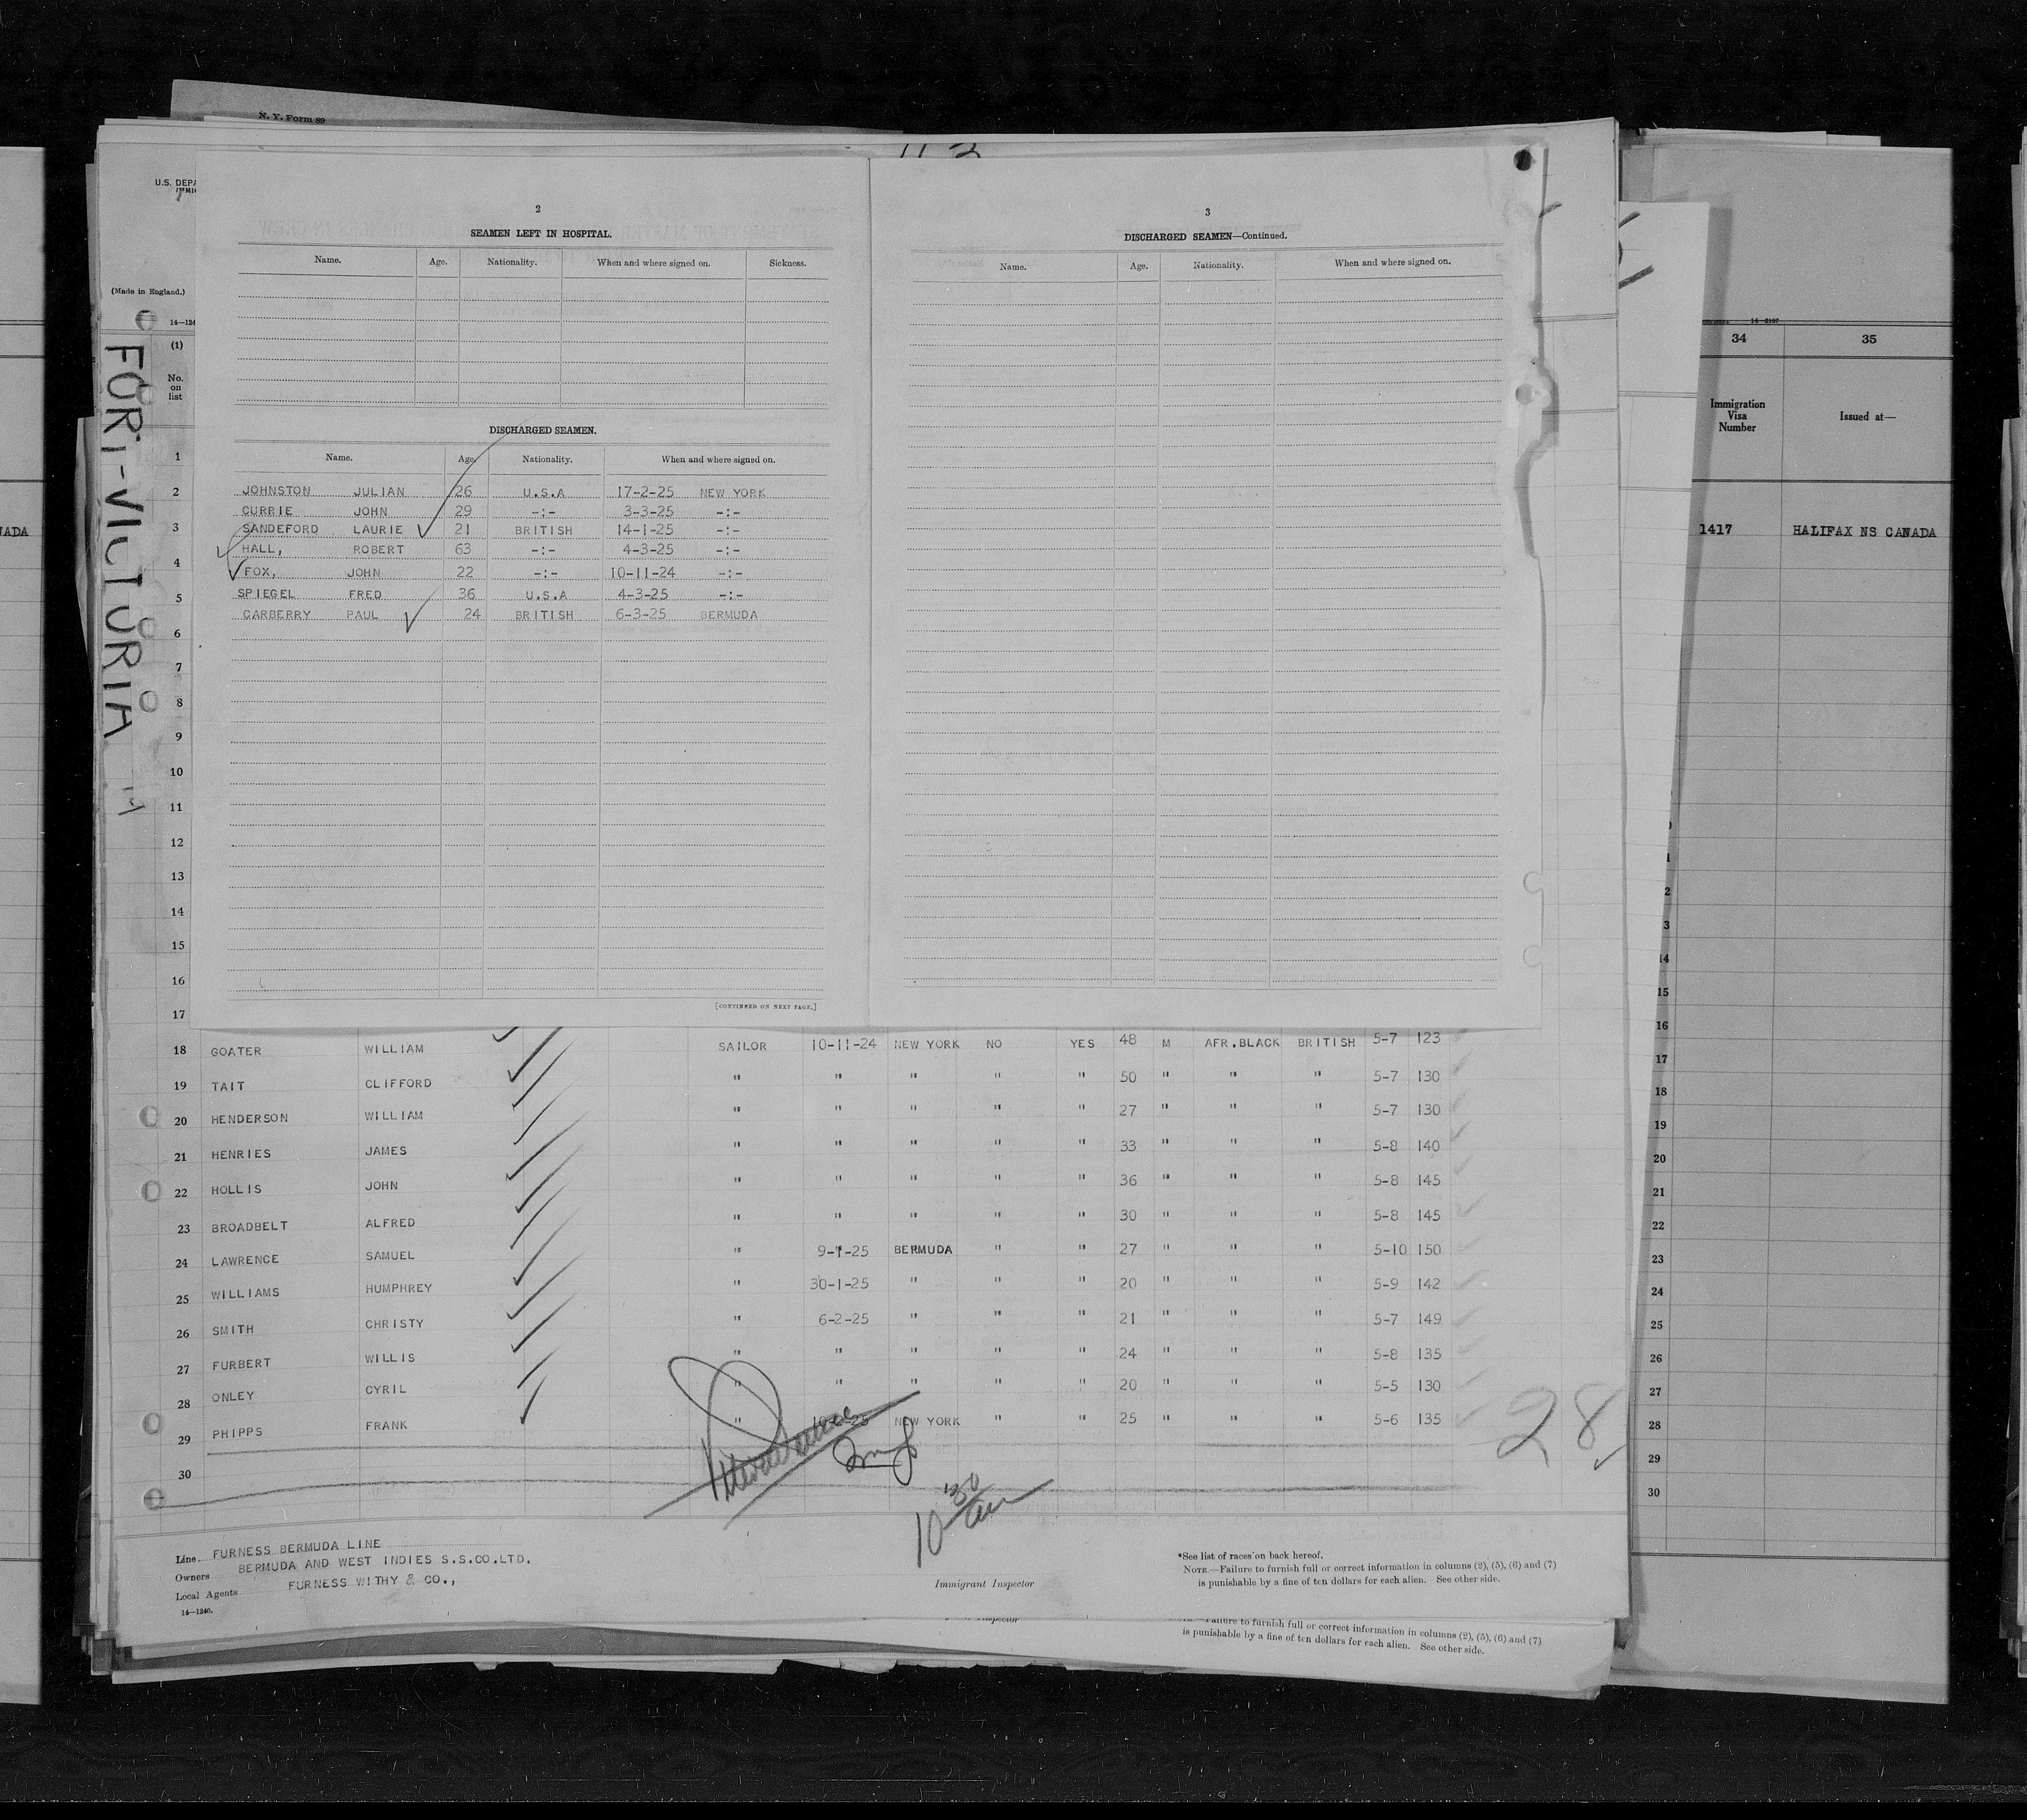 N. Y. Form 89
U.S. DEPA
IMMIG
(Made in England.)
14—124
(1)
No.
on
list
FORT-VICTORIA
2
SEAMEN LEFT IN HOSPITAL.
Name. Age. Nationality. When and where signed on. Sickness.
DISCHARGED SEAMEN.
Name. Age. Nationality. When and where signed on.
JOHNSTON JULIAN 26 U.S.A 17-2-25 NEW YORK
CURRIE JOHN 29 -:- 3-3-25 -:-
SANDEFORD LAURIE 21 BRITISH 14-1-25 -:-
HALL, ROBERT 63 -:- 4-3-25 -:-
FOX, JOHN 22 -:- 10-11-24 -:-
SPIEGEL FRED 36 U.S.A 4-3-25 -:-
CARBERRY PAUL 24 BRITISH 6-3-25 BERMUDA
[CONTINUED ON NEXT PAGE.]
3
DISCHARGED SEAMEN—Continued.
Name. Age. Nationality. When and where signed on.
1
2
3
4
5
6
7
8
9
10
11
12
13
14
15
16
17
18 GOATER WILLIAM SAILOR 10-11-24 NEW YORK NO YES 48 M AFR.BLACK BRITISH 5-7 123
19 TAIT CLIFFORD " " " " " 50 " " " 5-7 130
20 HENDERSON WILLIAM " " " " " 27 " " " 5-7 130
21 HENRIES JAMES " " " " " 33 " " " 5-8 140
22 HOLLIS JOHN " " " " " 36 " " " 5-8 145
23 BROADBELT ALFRED " " " " " 30 " " " 5-8 145
24 LAWRENCE SAMUEL " 9-1-25 BERMUDA " " 27 " " " 5-10 150
25 WILLIAMS HUMPHREY " 30-1-25 " " " 20 " " " 5-9 142
26 SMITH CHRISTY " 6-2-25 " " " 21 " " " 5-7 149
27 FURBERT WILLIS " " " " " 24 " " " 5-8 135
28 ONLEY CYRIL " " " " " 20 " " " 5-5 130
29 PHIPPS FRANK " NEW YORK " " 25 " " " 5-6 135
30
28
10 30 am
Line FURNESS BERMUDA LINE
Owners BERMUDA AND WEST INDIES S.S.CO.LTD.
Local Agents FURNESS WITHY & CO.,
14—1240.
Immigrant Inspector
*See list of races on back hereof.
NOTE.—Failure to furnish full or correct information in columns (2), (5), (6) and (7)
is punishable by a fine of ten dollars for each alien. See other side.
Inspector
Failure to furnish full or correct information in columns (2), (5), (6) and (7)
is punishable by a fine of ten dollars for each alien. See other side.
14—2107
34 35
Immigration
Visa
Number
Issued at—
1417 HALIFAX NS CANADA
14
15
16
17
18
19
20
21
22
23
24
25
26
27
28
29
30